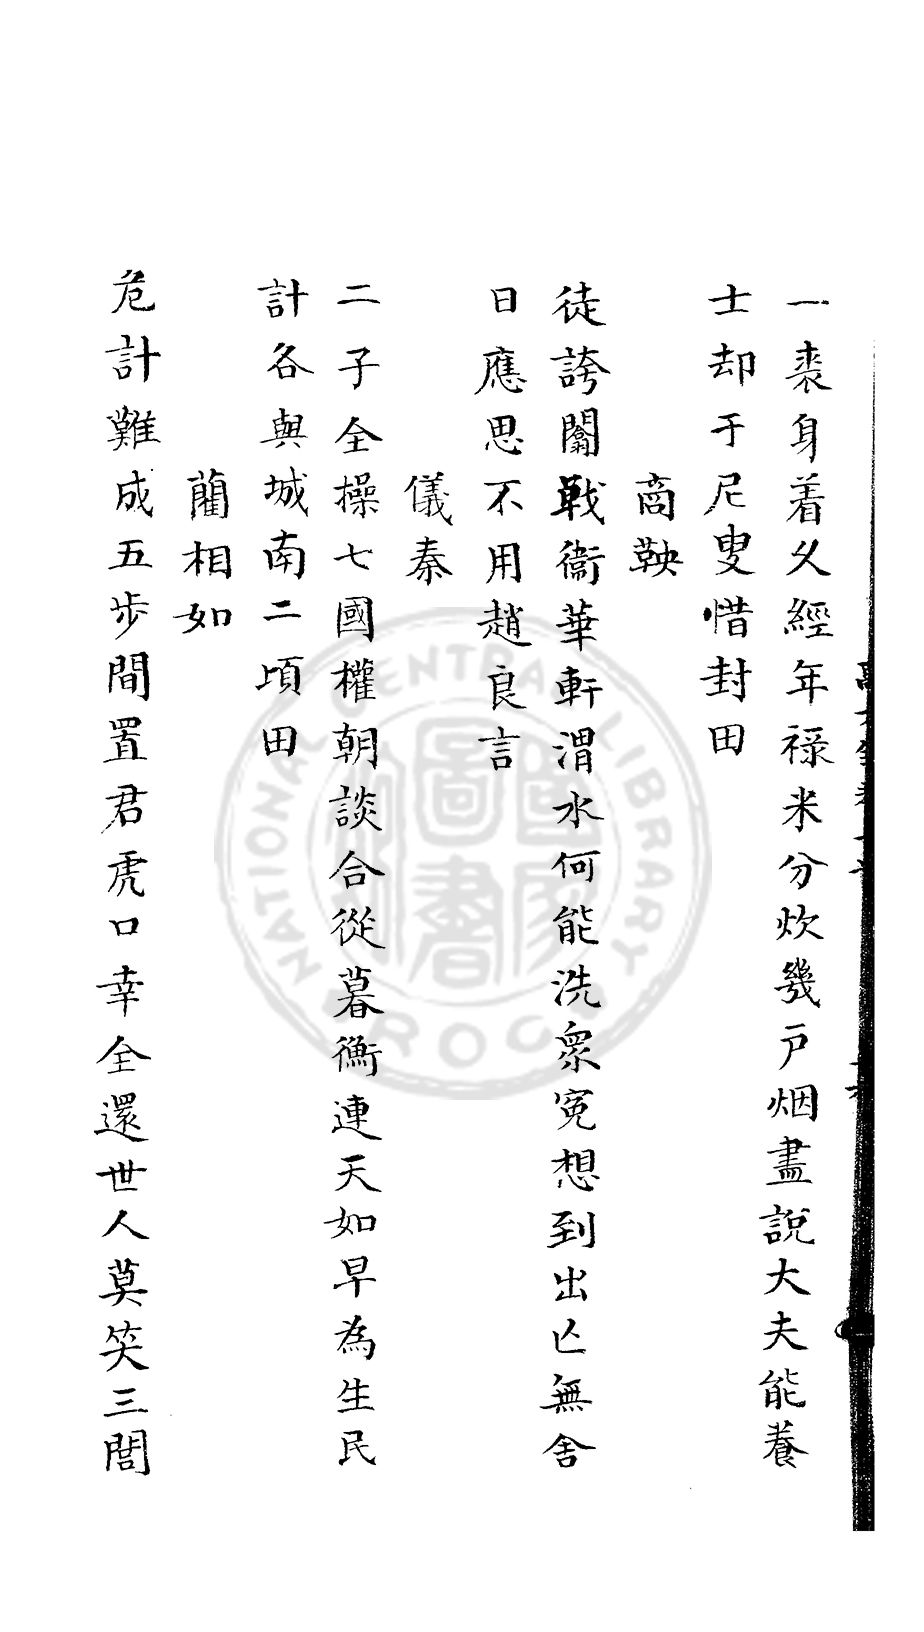 一裘身着久經年祿米分炊幾戸烟盡說大夫能養
士却于尼叟惜封田
商鞅
徒誇闟戟衞華軒渭水何能洗衆寃想到出亡無舎
日應思不用趙良言
儀秦
二子全操七國權朝談合從暮衡連天如早為生民
計各與城南二頃田
藺相如
危計難成五步間置君虎口幸全還世人莫笑三閭
NATIONAL CENTRAL LIBRARY
ROC
國家圖書館